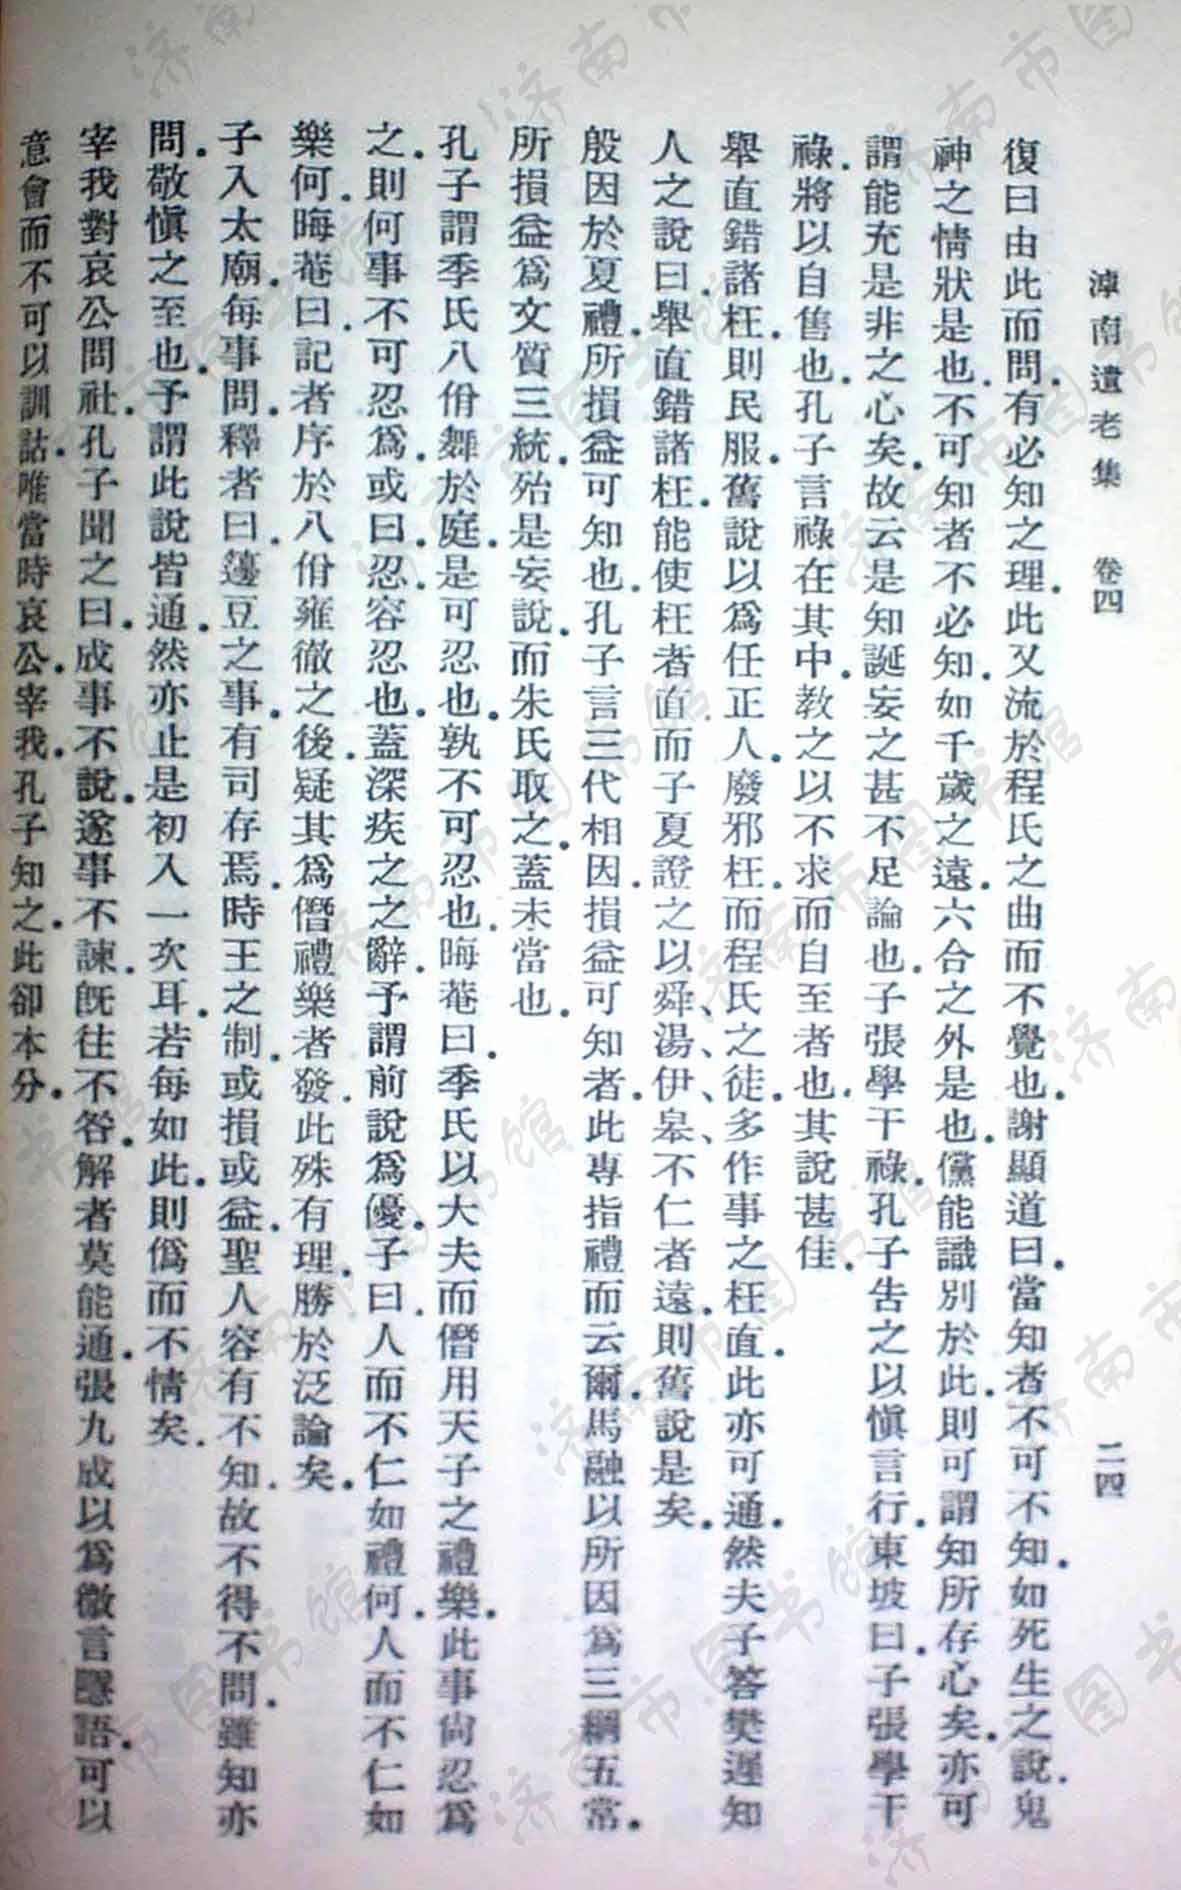 滹南遺老集　卷四　二四
復曰由此而問.有必知之理.此又流於程氏之曲而不覺也.謝顯道曰.當知者不可不知.如死生之說.鬼
神之情狀是也.不可知者不必知.如千歲之遠.六合之外是也.儻能識別於此.則可謂知所存心矣.亦可
謂能充是非之心矣.故云是知誕妄之甚.不足論也.子張學干祿.孔子告之以愼言行.東坡曰.子張學干
祿.將以自售也.孔子言祿在其中.教之以不求而自至者也.其說甚佳.
舉直錯諸枉.則民服.舊說以爲任正人.廢邪枉.而程氏之徒.多作事之枉直.此亦可通.然夫子答樊遲知
人之說曰.舉直錯諸枉.能使枉者直.而子夏證之以舜、湯、伊、皋、不仁者遠.則舊說是矣.
般因於夏禮.所損益.可知也.孔子言三代相因.損益可知者.此專指禮而云爾.馬融以所因爲三綱五常.
所損益爲文質三統.殆是妄說.而朱氏取之.蓋未當也.
孔子謂季氏八佾舞於庭.是可忍也.孰不可忍也.晦菴曰.季氏以大夫而僭用天子之禮樂.此事尙忍爲
之.則何事不可忍爲.或曰.忍.容忍也.蓋深疾之之辭.予謂前說爲優.子曰.人而不仁如禮何.人而不仁如
樂何.晦菴曰.記者序於八佾雍徹之後.疑其爲僭禮樂者發.此殊有理.勝於泛論矣.
子入太廟.每事問.釋者曰.籩豆之事.有司存焉.時王之制.或損或益.聖人容有不知.故不得不問.雖知亦
問.敬愼之至也.予謂此說皆通.然亦止是初入一次耳.若每如此.則僞而不情矣.
宰我對哀公問社.孔子聞之曰.成事不說.遂事不諫.旣往不咎.解者莫能通.張九成以爲微言隱語.可以
意會而不可以訓詁.唯當時哀公.宰我.孔子知之.此卻本分.